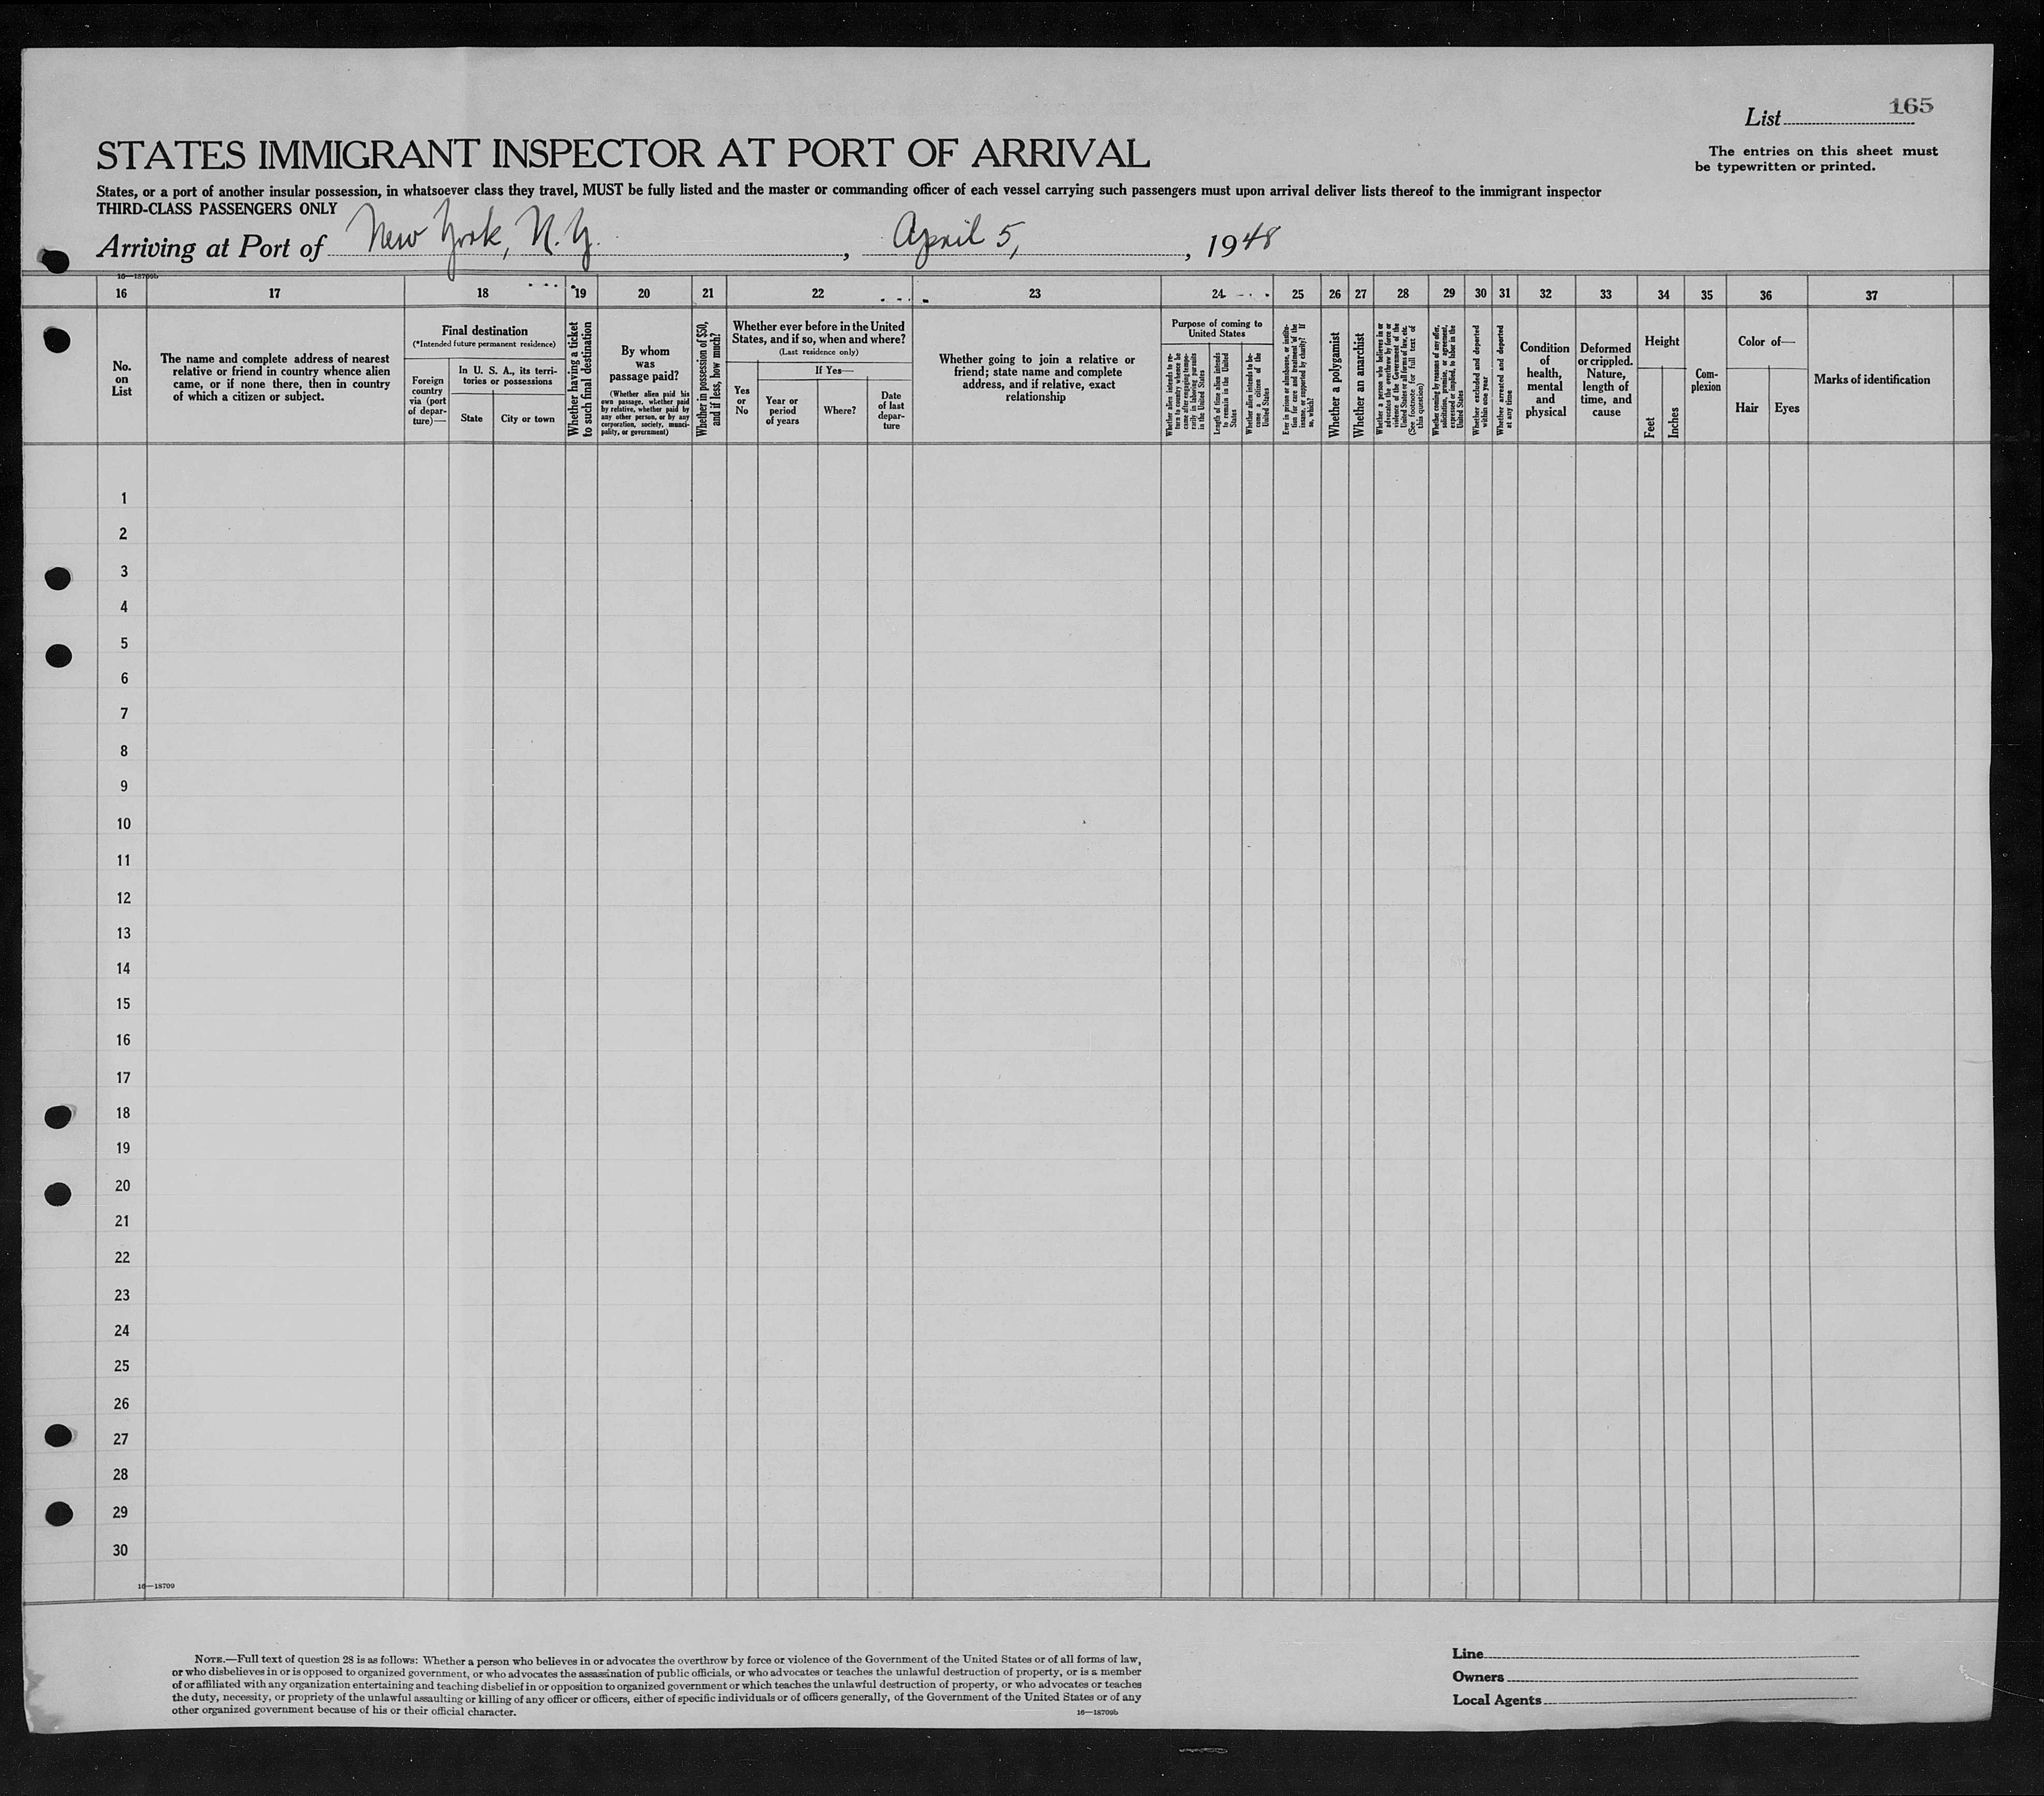 165
List
The entries on this sheet must
be typewritten or printed.
STATES IMMIGRANT INSPECTOR AT PORT OF ARRIVAL
States, or a port of another insular possession, in whatsoever class they travel, MUST be fully listed and the master or commanding officer of each vessel carrying such passengers must upon arrival deliver lists thereof to the immigrant inspector
THIRD-CLASS PASSENGERS ONLY
Arriving at Port of New York, N.Y., April 5, 1948
16—18709b
16 17 18 19 20 21 22 23 24 25 26 27 28 29 30 31 32 33 34 35 36 37
No.
on
List
The name and complete address of nearest
relative or friend in country whence alien
came, or if none there, then in country
of which a citizen or subject.
Final destination
(*Intended future permanent residence)
Foreign
country
via (port
of depar-
ture)—
In U. S. A., its terri-
tories or possessions
State
City or town
Whether having a ticket
to such final destination
By whom
was
passage paid?
(Whether alien paid his
own passage, whether paid
by relative, whether paid by
any other person, or by any
corporation, society, munici-
pality, or government)
Whether in possession of $50,
and if less, how much?
Whether ever before in the United
States, and if so, when and where?
(Last residence only)
Yes
or
No
If Yes—
Year or
period
of years
Where?
Date
of last
depar-
ture
Whether going to join a relative or
friend; state name and complete
address, and if relative, exact
relationship
Purpose of coming to
United States
Whether alien intends to re-
turn to country whence he
came after engaging tempo-
rarily in laboring pursuits
in the United States
Length of time alien intends
to remain in the United
States
Whether alien intends to be-
come a citizen of the
United States
Ever in prison or almshouse, or institu-
tion for care and treatment of the
insane, or supported by charity? If
so, which?
Whether a polygamist
Whether an anarchist
Whether a person who believes in or
advocates the overthrow by force or
violence of the Government of the
United States or all forms of law, etc.
(See footnote for full text of
this question)
Whether coming by reasons of any offer,
solicitation, promise, or agreement,
expressed or implied, to labor in the
United States
Whether excluded and deported
within one year
Whether arrested and deported
at any time
Condition
of
health,
mental
and
physical
Deformed
or crippled.
Nature,
length of
time, and
cause
Height
Feet
Inches
Com-
plexion
Color of—
Hair
Eyes
Marks of identification
1
2
3
4
5
6
7
8
9
10
11
12
13
14
15
16
17
18
19
20
21
22
23
24
25
26
27
28
29
30
16—18709
NOTE.—Full text of question 28 is as follows: Whether a person who believes in or advocates the overthrow by force or violence of the Government of the United States or of all forms of law,
or who disbelieves in or is opposed to organized government, or who advocates the assassination of public officials, or who advocates or teaches the unlawful destruction of property, or is a member
of or affiliated with any organization entertaining and teaching disbelief in or opposition to organized government or which teaches the unlawful destruction of property, or who advocates or teaches
the duty, necessity, or propriety of the unlawful assaulting or killing of any officer or officers, either of specific individuals or of officers generally, of the Government of the United States or of any
other organized government because of his or their official character.
16—18709b
Line
Owners
Local Agents